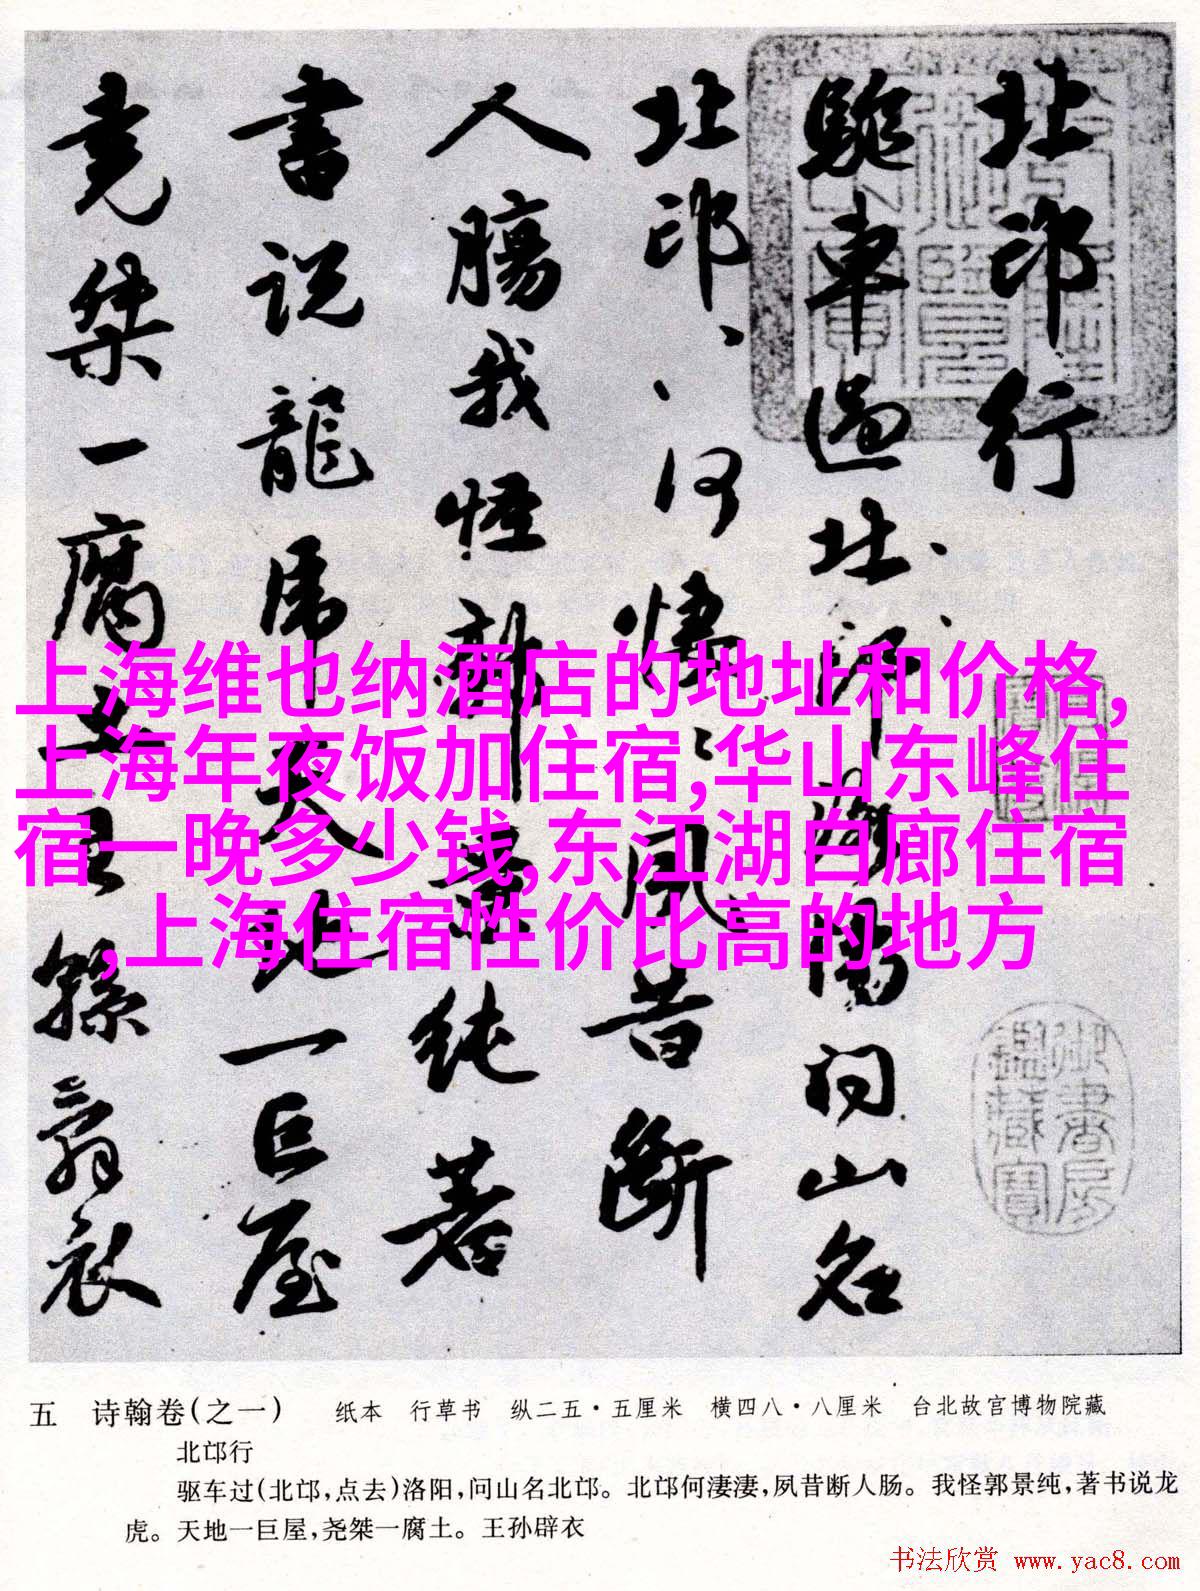 北邙行
駈車過北邙洛陽问山名
北邙、、何悽、、夙昔断
人膓我怪郭景纯著
書说龍虎天地一巨屋
尭桀一腐土王孫辟衣
御書房鑑藏寶
上海维也纳酒店的地址和价格,
上海年夜饭加住宿,华山东峰住
宿一晚多少钱,东江湖白廊住宿
,上海住宿性价比高的地方
五 诗翰卷(之一) 纸本 行草书 纵二五·五厘米 横四八·八厘米 台北故宫博物院藏
北邙行
驱车过(北邙,点去)洛阳,问山名北邙。北邙何凄凄,夙昔断人肠。我怪郭景纯,著书说龙
虎。天地一巨屋,尧桀一腐土。王孙辟衣
书法欣赏 www.yac8.com